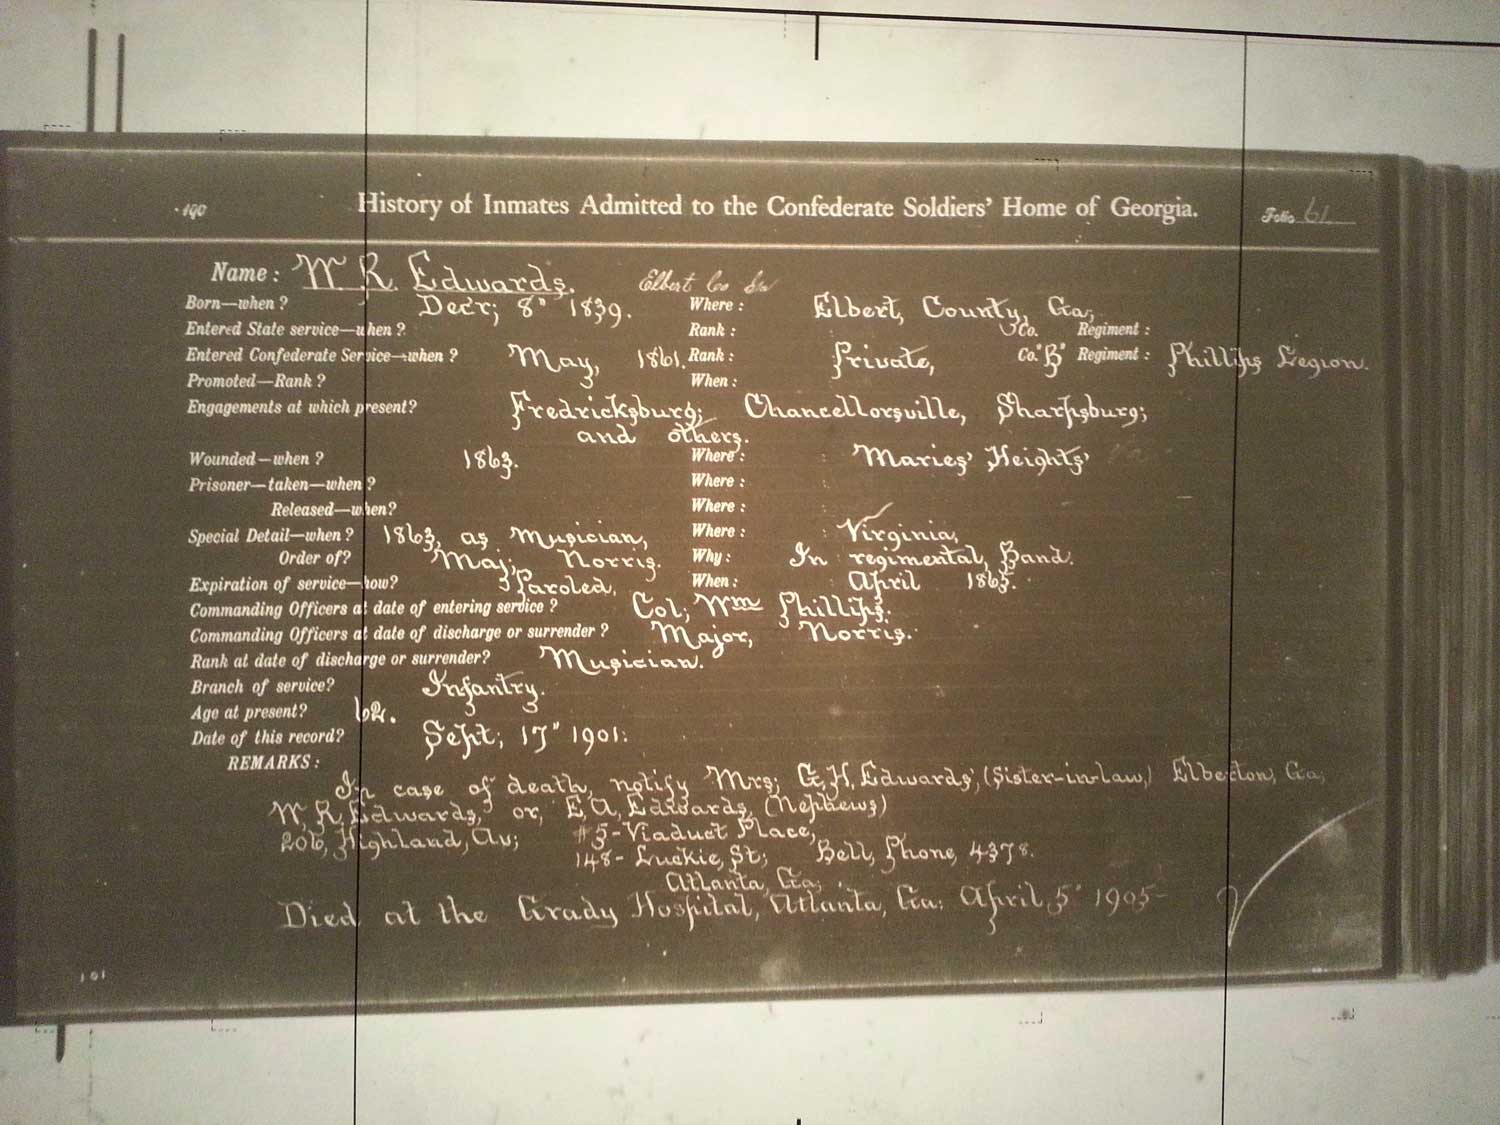 190 History of Inmates Admitted to the Confederate Soldiers' Home of Georgia. Folio 61
Name: W. R. Edwards. Elbert Co
Born—when? Decr; 8" 1839. Where: Elbert, County, Ga,
Entered State service—when? Rank: Co. Regiment:
Entered Confederate Service—when? May, 1861. Rank: Private, Co. "B" Regiment: Phillips Legion.
Promoted—Rank? When:
Engagements at which present? Fredricksburg; Chancellorsville, Sharpsburg;
and others.
Wounded—when? 1863. Where: Maries' Heights'
Prisoner—taken—when? Where:
Released—when? Where:
Special Detail—when? 1863, as Musician, Where: Virginia,
Order of? Maj; Norris. Why: In regimental, Band.
Expiration of service—how? Paroled, When: April 1865.
Commanding Officers at date of entering service? Col; Wm Phillips.
Commanding Officers at date of discharge or surrender? Major, Norris.
Rank at date of discharge or surrender? Musician.
Branch of service? Infantry.
Age at present? 62.
Date of this record? Sept; 17" 1901.
REMARKS:
In case of death, notify Mrs; G. H. Edwards, (Sister-in-law,) Elberton, Ga,
W. R. Edwards, or, E. A. Edwards, (Nephews)
206, Highland, Av; #5-Viaduct Place,
148- Luckie, St; Bell, Phone, 4378.
Atlanta, Ga,
Died at the Grady Hospital, Atlanta, Ga: April, 5" 1905-
191